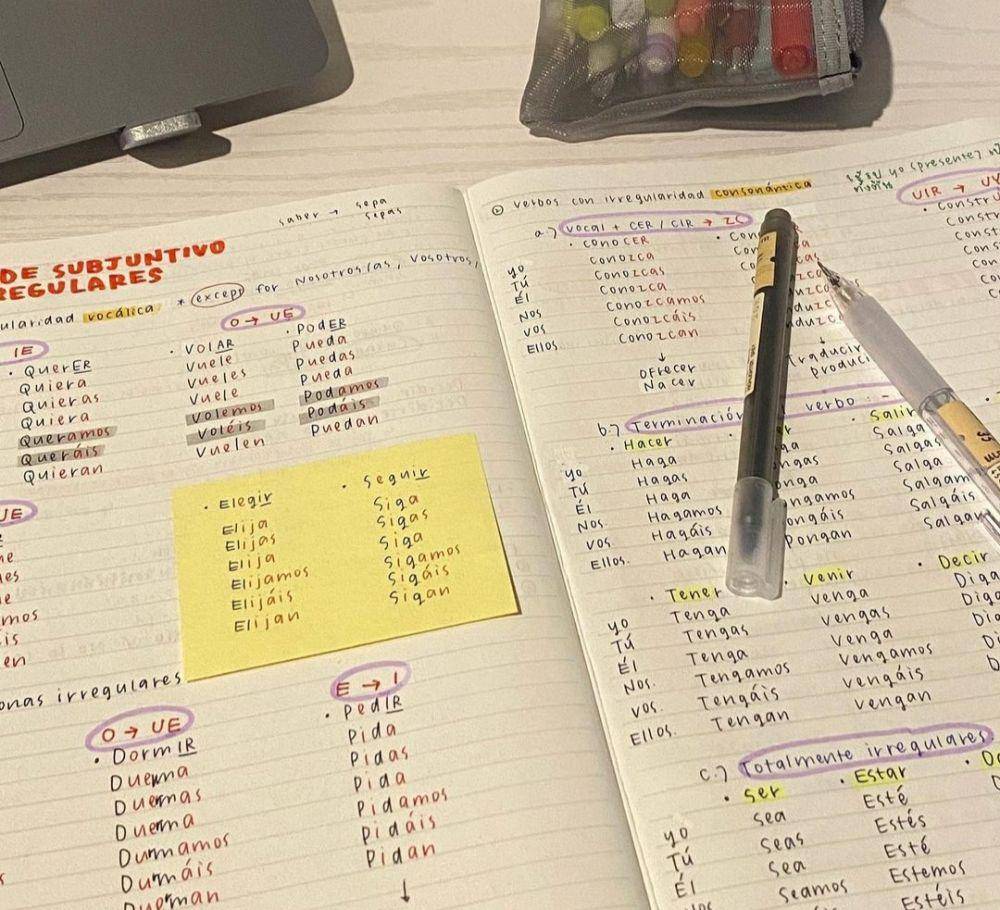 saber → sepa
sepas
DE SUBJUNTIVO
REGULARES
ularidad vocálica * except for Nosotros/as, Vosotros,
IE
O → UE
· QuerER
Quiera
Quieras
Quiera
Queramos
Queráis
Quieran
· VOlAR
Vuele
Vueles
Vuele
Volemos
Voléis
Vuelen
· PodER
Pueda
Puedas
Pueda
Podamos
Podáis
Puedan
UE
es
e
mos
is
en
· Elegir
Elija
Elijas
Elija
Elijamos
Elijáis
Elijan
· Seguir
Siga
Sigas
Siga
Sigamos
Sigáis
Sigan
onas irregulares
O → UE
· DormIR
Duerma
Duermas
Duerma
Durmamos
Durmáis
Duerman
E → I
· PedIR
Pida
Pidas
Pida
Pidamos
Pidáis
Pidan
↓
⊙ verbos con irregularidad consonántica
yo (presente)
a.) vocal + CER / CIR → ZC
UIR → UY
· conoCER
yo conozca
Tú conozcas
Él conozca
Nos conozcamos
Vos conozcáis
Ellos conozcan
↓
ofrecer
Nacer
· Con
Con
Co
↓
Traducir
Produci
· Constru
Constr
Const
Cons
Con
b.) Terminación verbo : -
· Hacer
yo Haga
Tú Hagas
Él Haga
Nos Hagamos
Vos. Hagáis
Ellos. Hagan
ga
ngas
onga
ngamos
ongáis
Pongan
· Salir
Salga
Salgas
Salga
Salgam
Salgáis
Salgan
· Tener
yo Tenga
Tú Tengas
Él Tenga
Nos. Tengamos
Vos. Tengáis
Ellos. Tengan
· Venir
venga
vengas
venga
vengamos
vengáis
vengan
· Decir
Diga
Diga
Di
c.) Totalmente irregulares
· Ser
yo sea
Tú seas
Él sea
seamos
· Estar
Esté
Estés
Esté
Estemos
Estéis